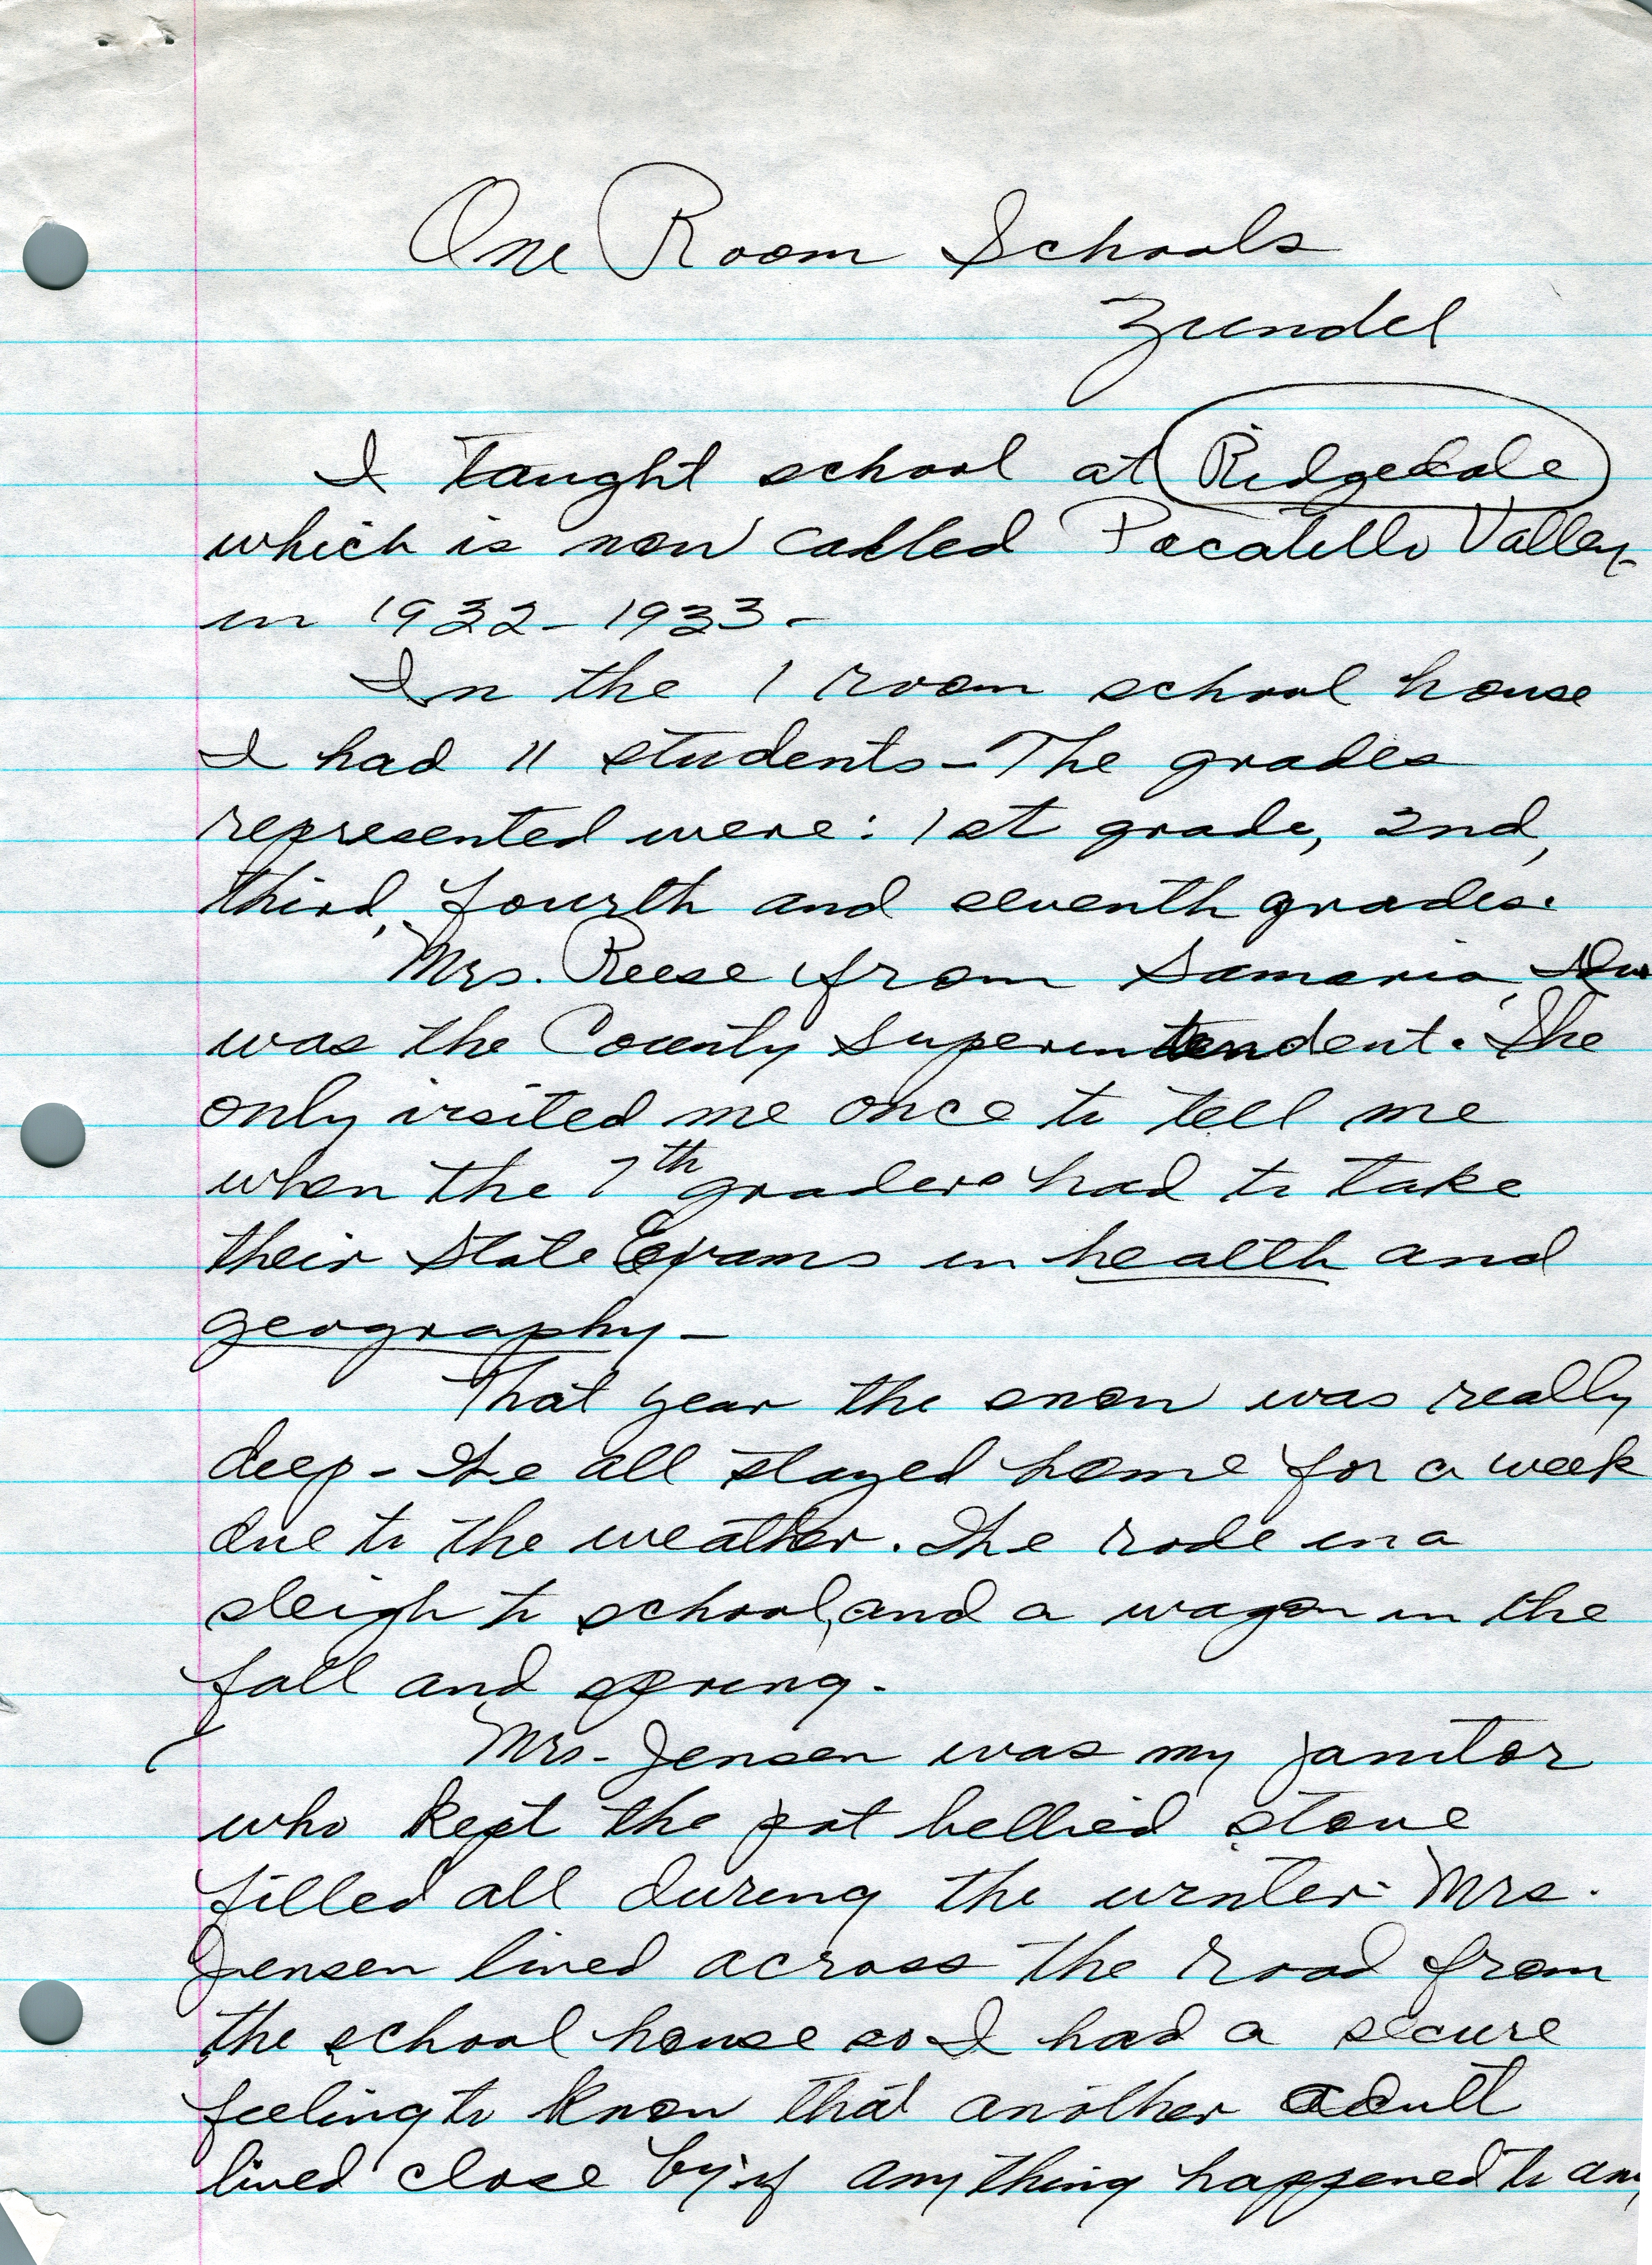 One Room Schools
Zundel
I taught school at Ridgedale
which is now called Pocatello Valley-
in 1932-1933-
In the 1 room school house
I had 11 students - The grades
represented were: 1st grade, 2nd,
third, fourth and seventh grades.
Mrs. Reese from Samaria,
was the County Superintendent. She
only visited me once to tell me
when the 7th graders had to take
their State Exams in health and
geography -
That year the snow was really
deep - We all stayed home for a week
due to the weather. We rode in a
sleigh to school, and a wagon in the
fall and spring.
Mrs. Jensen was my janitor
who kept the pot bellied stove
filled all during the winter. Mrs.
Jensen lived across the road from
the school house so I had a secure
feeling to know that another adult
lived close by if any thing happened to any